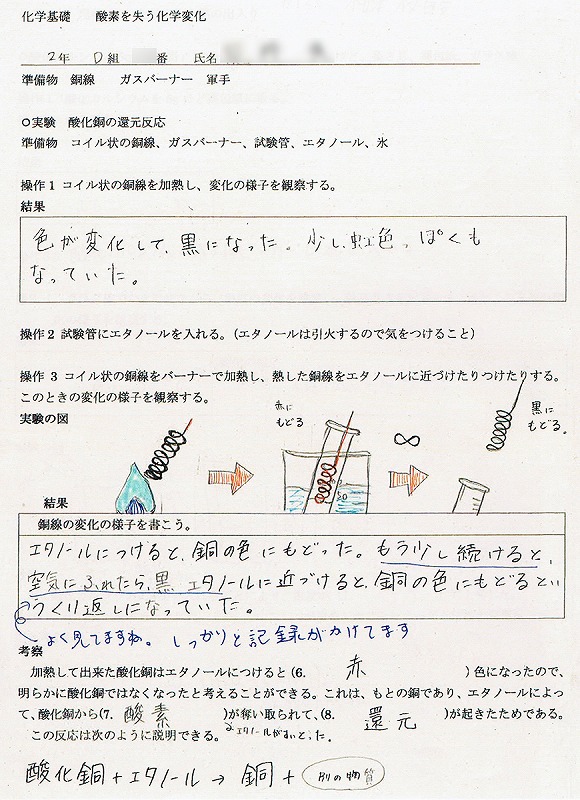 化学基礎　酸素を失う化学変化
2年　D組　番　氏名
準備物　銅線　ガスバーナー　軍手
○実験　酸化銅の還元反応
準備物　コイル状の銅線、ガスバーナー、試験管、エタノール、氷
操作1 コイル状の銅線を加熱し、変化の様子を観察する。
結果
色が変化して、黒になった。少し、虹色っぽくも
なっていた。
操作2 試験管にエタノールを入れる。（エタノールは引火するので気をつけること）
操作 3 コイル状の銅線をバーナーで加熱し、熱した銅線をエタノールに近づけたりつけたりする。
このときの変化の様子を観察する。
実験の図
赤に
もどる
∞
黒に
もどる。
50
結果
銅線の変化の様子を書こう。
エタノールにつけると、銅の色にもどった。もう少し続けると、
空気にふれたら、黒 エタノールに近づけると、銅の色にもどるとい
うくり返しになっていた。
よく見てますね。しっかりと記録がかけてます
考察
加熱して出来た酸化銅はエタノールにつけると（6.　赤　）色になったので、
明らかに酸化銅ではなくなったと考えることができる。これは、もとの銅であり、エタノールによっ
て、酸化銅から（7.　酸素　）が奪い取られて、（8.　還元　）が起きたためである。
エタノールがすいとった。
この反応は次のように説明できる。
酸化銅＋エタノール → 銅＋ 別の物質